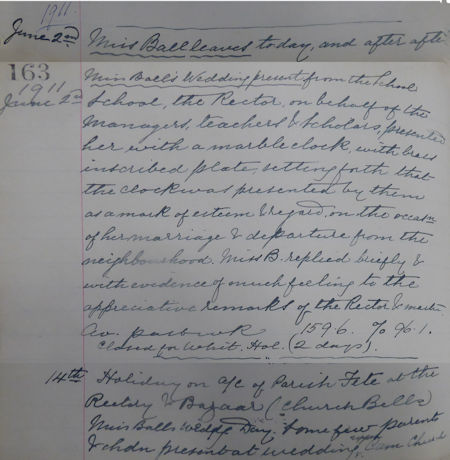 1911.
June 2nd Miss Ball leaves today, and after afte
163
1911
June 2nd
Miss Ball's Wedding present from the School
School, the Rector, on behalf of the
Managers, teachers & Scholars, presented
her with a marble clock, with brass
inscribed plate, setting forth that
the clock was presented by them
as a mark of esteem & regard, on the occasn
of her marriage & departure from the
neighbourhood. Miss B. replied briefly &
with evidence of much feeling to the
appreciative remarks of the Rector &
Av. past wk 159.6. % 96.1.
Closed for Whit. Hol. (2 days).
14th Holiday on a/c of Parish Fete at the
Rectory & Bazaar (Church Bells)
Miss Balls Day. & some few parents
& chdn present at wedding Church